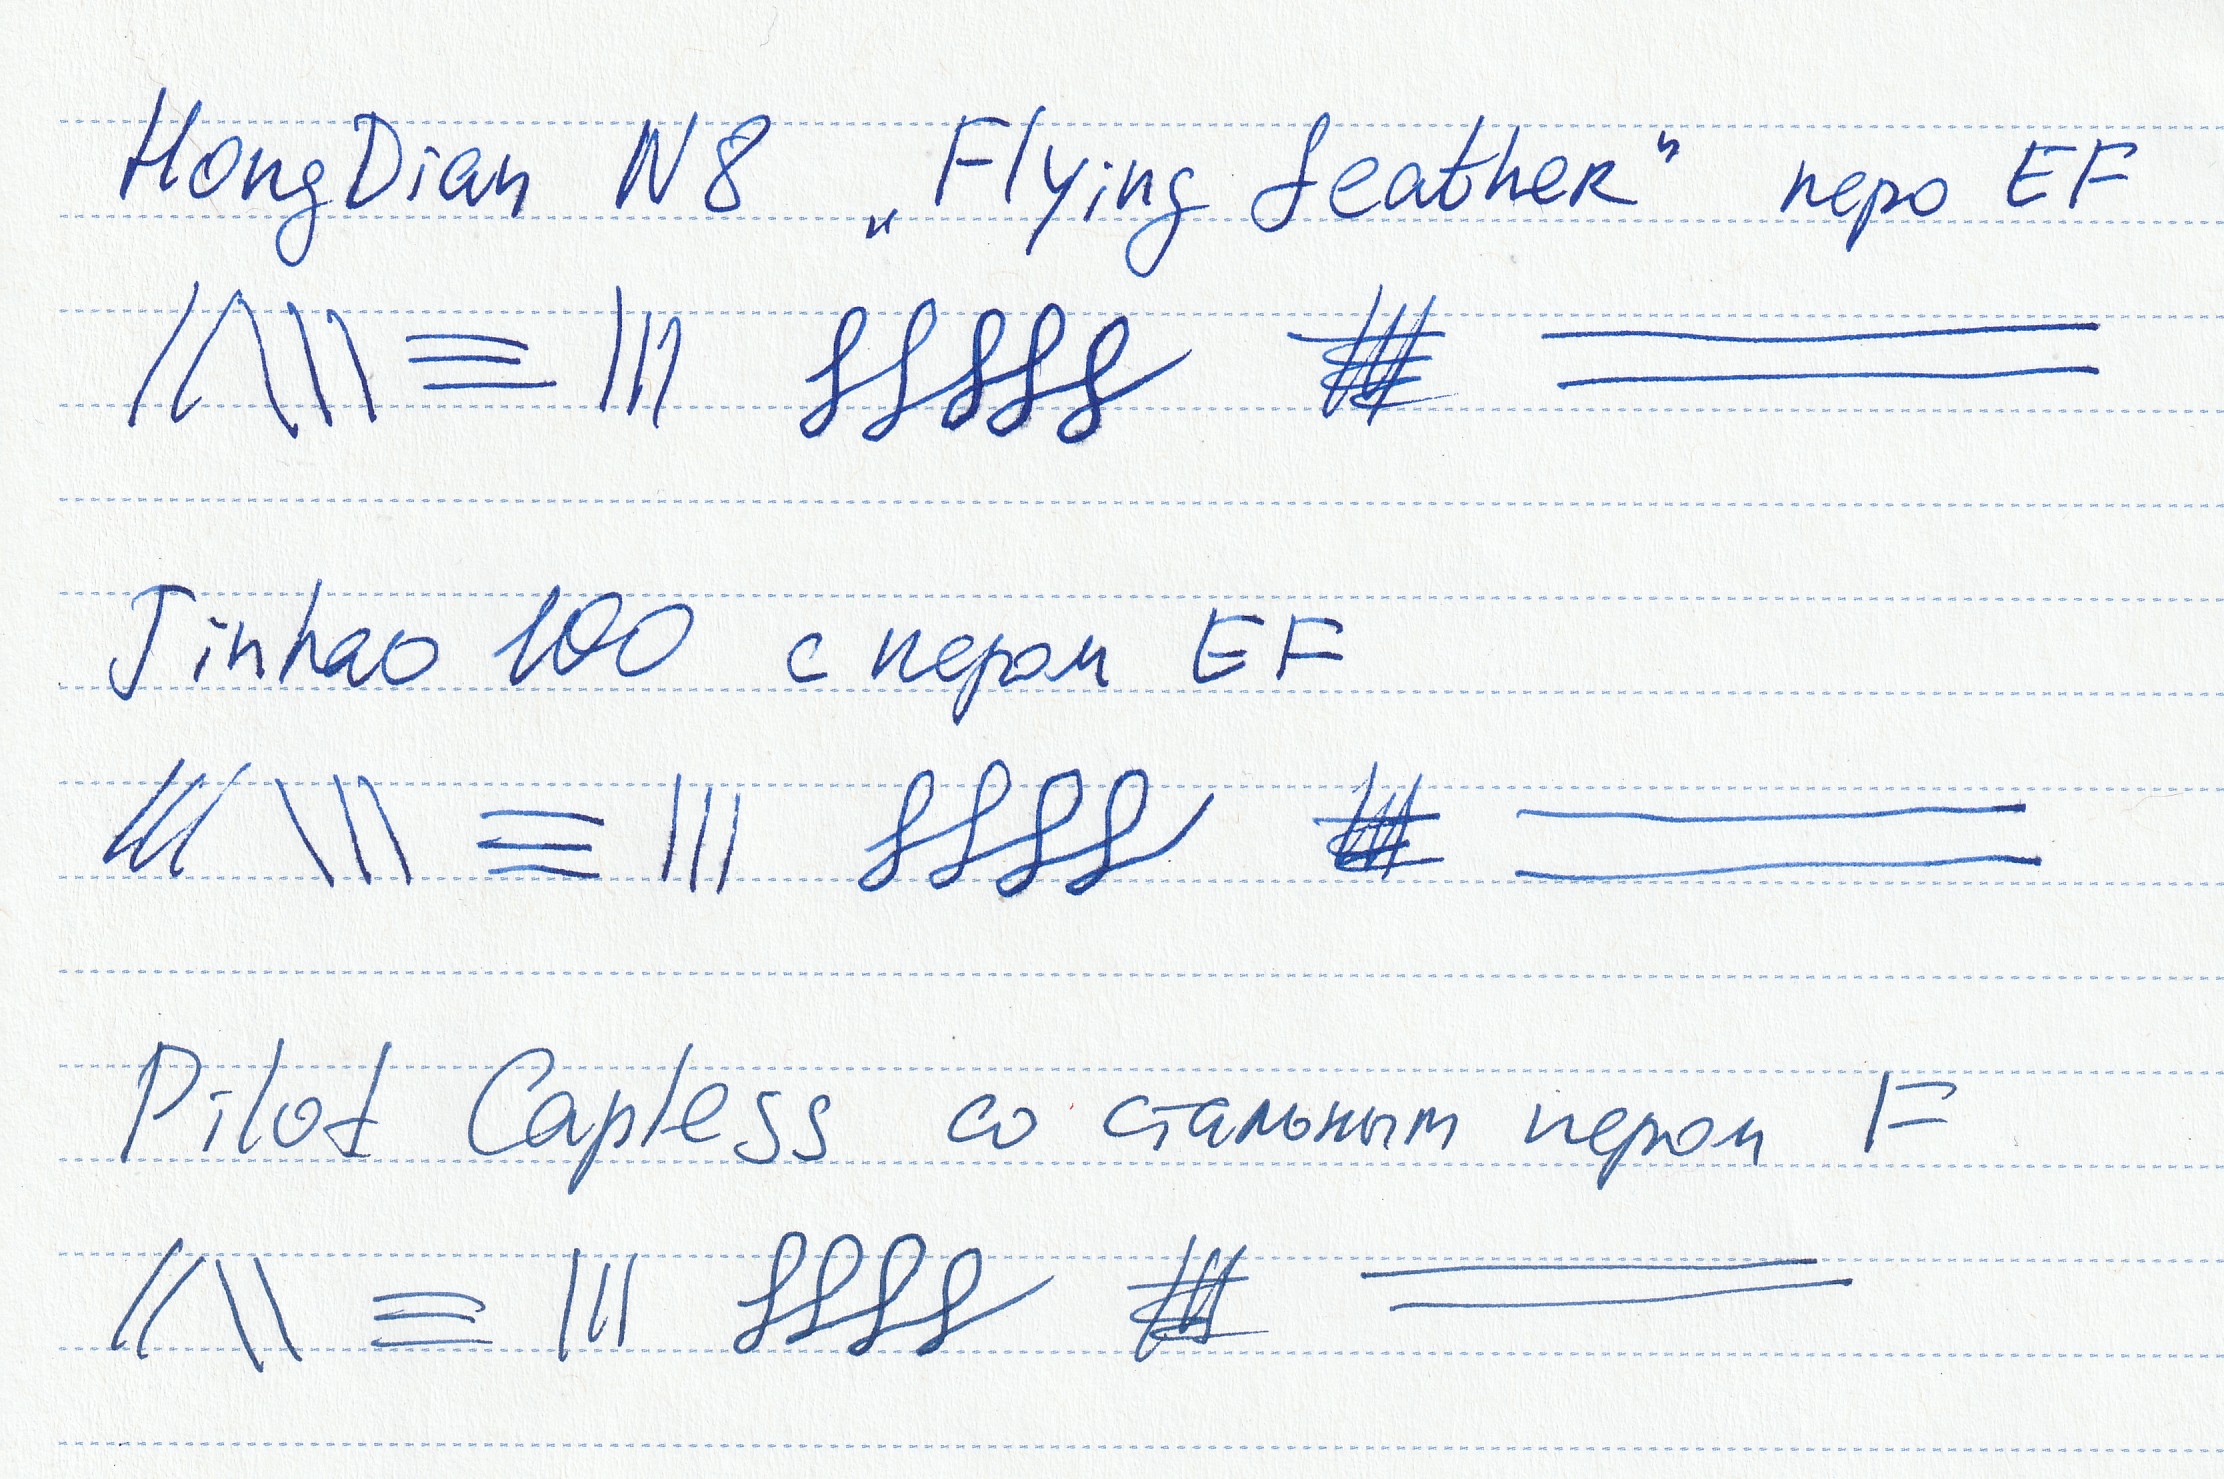 HongDian N8 „Flying feather” перо EF
Jinhao 100 с пером EF
Pilot Capless со стальным пером F